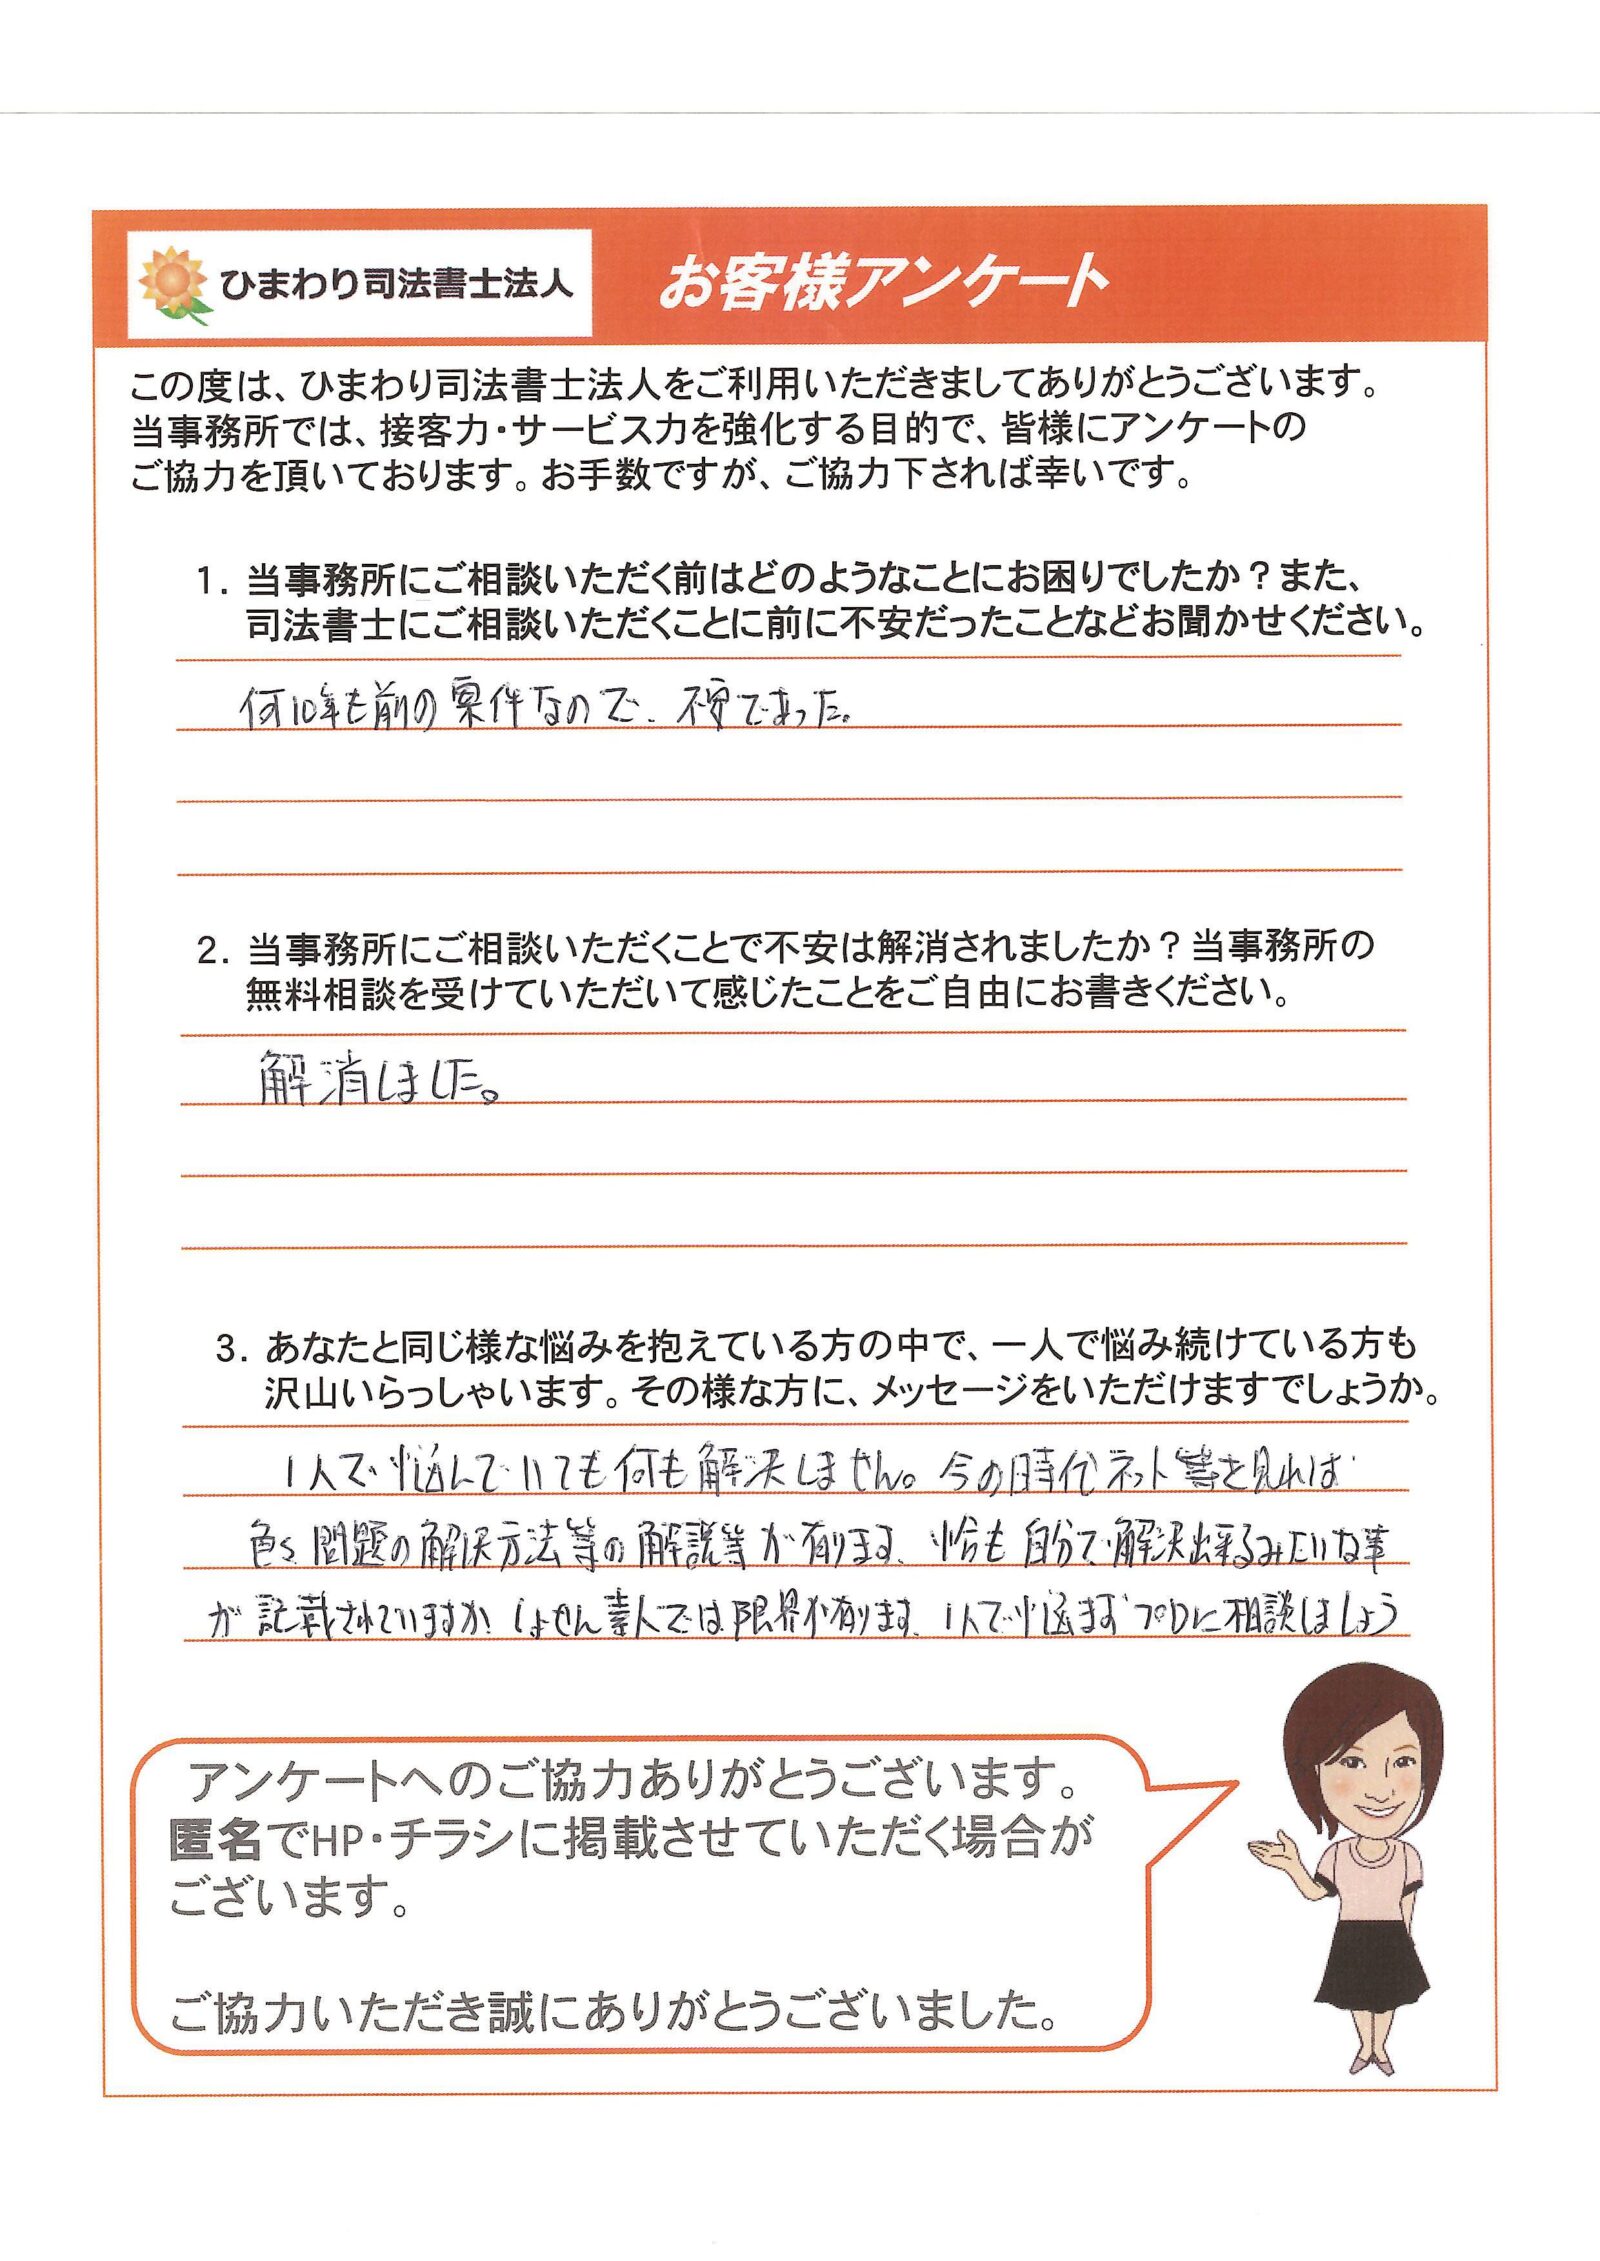 ひまわり司法書士法人
お客様アンケート
この度は、ひまわり司法書士法人をご利用いただきましてありがとうございます。
当事務所では、接客力・サービス力を強化する目的で、皆様にアンケートの
ご協力を頂いております。お手数ですが、ご協力下されば幸いです。
1. 当事務所にご相談いただく前はどのようなことにお困りでしたか？また、
司法書士にご相談いただくことに前に不安だったことなどお聞かせください。
何10年も前の案件なので、不安であった。
2. 当事務所にご相談いただくことで不安は解消されましたか？当事務所の
無料相談を受けていただいて感じたことをご自由にお書きください。
解消しました。
3. あなたと同じ様な悩みを抱えている方の中で、一人で悩み続けている方も
沢山いらっしゃいます。その様な方に、メッセージをいただけますでしょうか。
1人で悩んでいても何も解決しません。今の時代ネット等を見れば
色々問題の解決方法等の解説等が有ります、恰も自分で解決出来るみたいな事
が記載されていますが、しょせん素人では限界が有ります、1人で悩まずプロに相談しましょう
アンケートへのご協力ありがとうございます。
匿名でHP・チラシに掲載させていただく場合が
ございます。
ご協力いただき誠にありがとうございました。